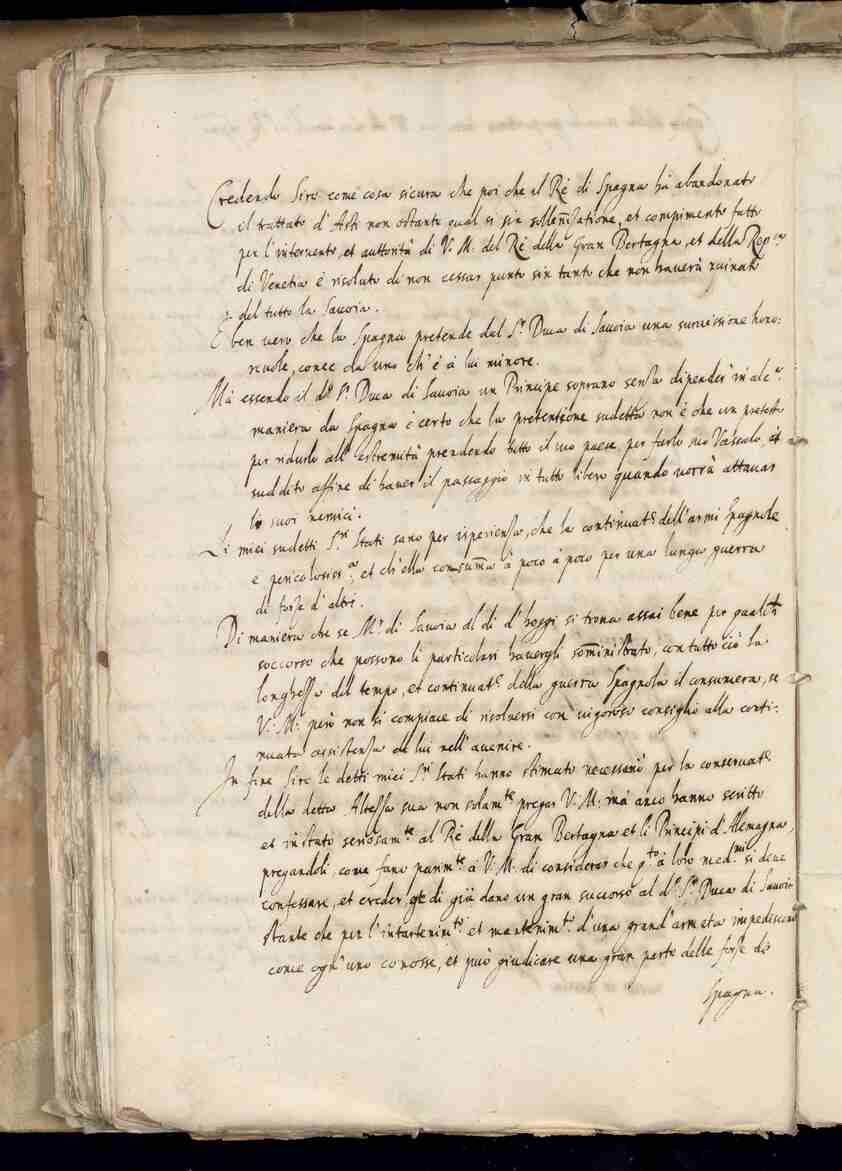 Credendo Sire come cosa sicura che poi che el Rè di Spagna hà abandonato
il trattato d'Asti non ostante qual si sia sollen̄izatione, et compimento fatto
per l'intervento, et auttorità di V. M. del Rè della Gran Bertagna, et della Rep.ca
di Venetia è risoluto di non cessar punto sin tanto che non haverà ruinato
del tutto la Savoia.
È ben vero che la Spagna pretende dal S.r Duca di Savoia una summissione hono:
revole, come da uno ch'è à lui minore.
Mà essendo il d.o S.r Duca di Savoia un Principe soprano senza dipender in alc.a
maniera da Spagna è certo che la pretentione sudetta non è che un pretesto
per ridurlo all'estremità prendendo tutto il suo paese, per farlo suo Vassalo, et
suddito affine di haver il passaggio in tutto libero quando vorrà attacar
li suoi nemici.
Li miei sudetti S.ri Stati sano per isperienza, che la continuat.e dell'armi Spagnole
è pericolosiss.a, et ch'ella comsum̄a à poco à poco per una lunga guerra
di forze d'altri.
Di maniera che se M.r di Savoia al dì d'hoggi si trova assai bene per qualche
soccorso che possono li particolari havergli som̄inistrato, con tutto ciò la
longhezza del tempo, et continuat.e della guerra Spagnola il consumera, se
V. M. però non si compiace di risolversi con vigoroso consiglio alla conti:
nuata assistenza de lui nell'avenire.
In fine Sire le detti miei S.ri Stati hanno stimato necessario per la conservat.e
della detta Altezza sua non solam.te pregar V. M. mà anco hanno scritto
et instato seriosam.te al Rè della Gran Bertagna et li Principi d'Alemagna,
pregandoli come fano parim.te à V. M. di considerar che q.to à loro med.mi si deve
confessare, et creder che di già dano un gran succorso al d.o S.r Duca di Savoia
stante che per l'intartenim.to, et mantenim.to d'una grand'armeta impediscono
come ogn'uno conosse, et può giudicare una gran parte delle forze di
Spagna.